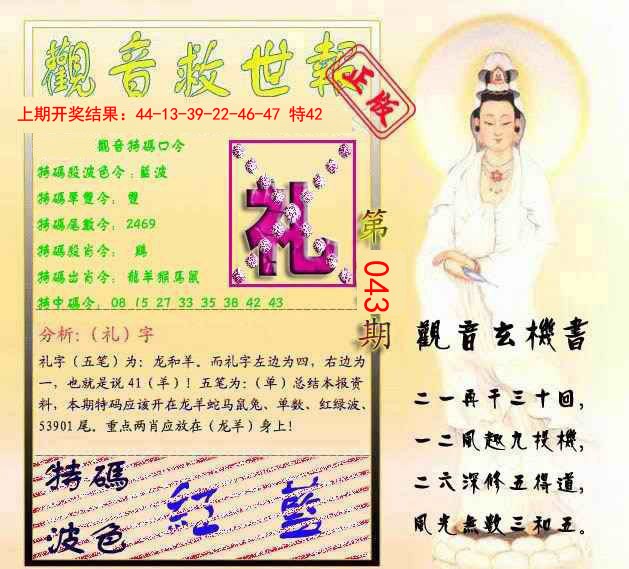 觀音救世報
正版
上期开奖结果：44-13-39-22-46-47 特42
觀音特碼口令
特碼段波色令：藍波
特碼單雙令：雙
特碼尾數令：2469
特碼段肖令：鷄
特碼出肖令：龍羊猴馬鼠
特中碼令：08 15 27 33 35 38 42 43
礼
第
043
期
分析:（礼）字
礼字（五笔）为：龙和羊。而礼字左边为四，右边为
一，也就是说41（羊）！五笔为：（单）总结本报资
料，本期特码应该开在龙羊蛇马鼠兔、单数、红绿波、
53901尾。重点两肖应放在（龙羊）身上！
特碼
波色
紅 藍
觀音玄機書
二一再干三十回，
一二風趣九投機，
二六深修五得道，
風光無數三和五。